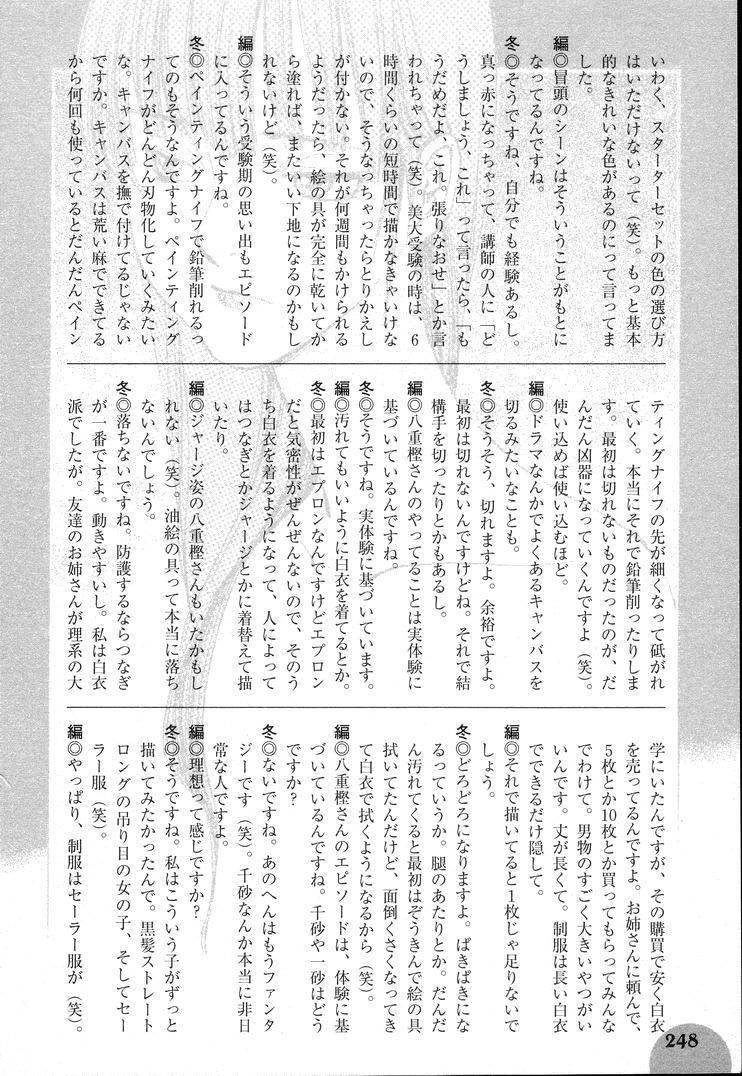 いわく、スターターセットの色の選び方
はいただけないって（笑）。もっと基本
的なきれいな色があるのにって言ってま
した。
編◎冒頭のシーンはそういうことがもとに
なってるんですね。
冬◎そうですね、自分でも経験あるし。
真っ赤になっちゃって、講師の人に「ど
うしましょう、これ」って言ったら、「も
うだめだよ、これ。張りなおせ」とか言
われちゃって（笑）。美大受験の時は、6
時間くらいの短時間で描かなきゃいけな
いので、そうなっちゃったらとりかえし
が付かない。それが何週間もかけられる
ようだったら、絵の具が完全に乾いてか
ら塗れば、またいい下地になるのかもし
れないけど（笑）。
編◎そういう受験期の思い出もエピソード
に入ってるんですね。
冬◎ペインティングナイフで鉛筆削れるっ
てのもそうなんですよ。ペインティング
ナイフがどんどん刃物化していくみたい
な。キャンバスを撫で付けてるじゃない
ですか。キャンバスは荒い麻でできてる
から何回も使っているとだんだんペイン
ティングナイフの先が細くなって砥がれ
ていく。本当にそれで鉛筆削ったりしま
す。最初は切れないものだったのが、だ
んだん凶器になっていくんですよ（笑）。
使い込めば使い込むほど。
編◎ドラマなんかでよくあるキャンバスを
切るみたいなことも。
冬◎そうそう、切れますよ。余裕ですよ。
最初は切れないんですけどね。それで結
構手を切ったりとかもあるし。
編◎八重樫さんのやってることは実体験に
基づいているんですね。
冬◎そうですね。実体験に基づいています。
編◎汚れてもいいように白衣を着てるとか。
冬◎最初はエプロンなんですけどエプロン
だと気密性がぜんぜんないので、そのう
ち白衣を着るようになって、人によって
はつなぎとかジャージとかに着替えて描
いたり。
編◎ジャージ姿の八重樫さんもいたかもし
れない（笑）。油絵の具って本当に落ち
ないんでしょう。
冬◎落ちないですね。防護するならつなぎ
が一番ですよ。動きやすいし。私は白衣
派でしたが。友達のお姉さんが理系の大
学にいたんですが、その購買で安く白衣
を売ってるんですよ。お姉さんに頼んで、
5枚とか10枚とか買ってもらってみんな
でわけて。男物のすごく大きいやつがい
いんです。丈が長くて。制服は長い白衣
でできるだけ隠して。
編◎それで描いてると1枚じゃ足りないで
しょう。
冬◎どろどろになりますよ。ぱきぱきにな
るっていうか。腿のあたりとか。だんだ
ん汚れてくると最初はぞうきんで絵の具
拭いてたんだけど、面倒くさくなってき
て白衣で拭くようになるから（笑）。
編◎八重樫さんのエピソードは、体験に基
づいているんですね。千砂や一砂はどう
ですか？
冬◎ないですね。あのへんはもうファンタ
ジーです（笑）。千砂なんか本当に非日
常な人ですよ。
編◎理想って感じですか？
冬◎そうですね。私はこういう子がずっと
描いてみたかったんで。黒髪ストレート
ロングの吊り目の女の子、そしてセー
ラー服（笑）。
編◎やっぱり、制服はセーラー服が（笑）。
248